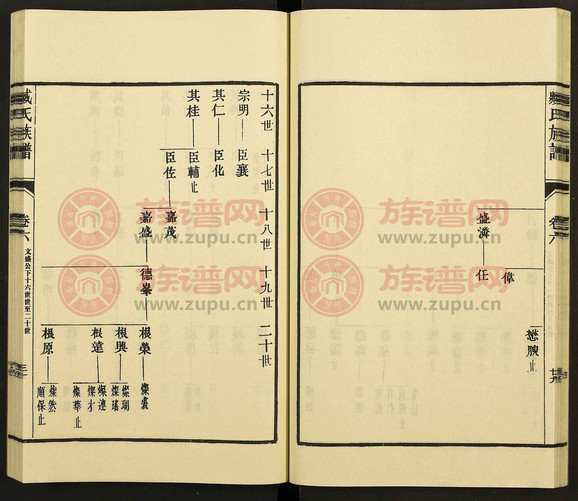 盛濟
任
偉
懋腴止
臧氏族譜
卷六
十六世 十七世 十八世 十九世 二十世
宗明 臣襄
其仁 臣化
其桂 臣輔止
臣佐 嘉茂
嘉盛 德峯
根榮 燦裳
根興 燦瑚
燦瑤
根遠 燦連
燦才
燦華止
根原 燦然
順保止
臧氏族譜
卷六
文盛公下十六世世至二十世
三
族谱网
www.zupu.cn
族谱网
www.zupu.cn
族谱网
www.zupu.cn
族谱网
www.zupu.cn